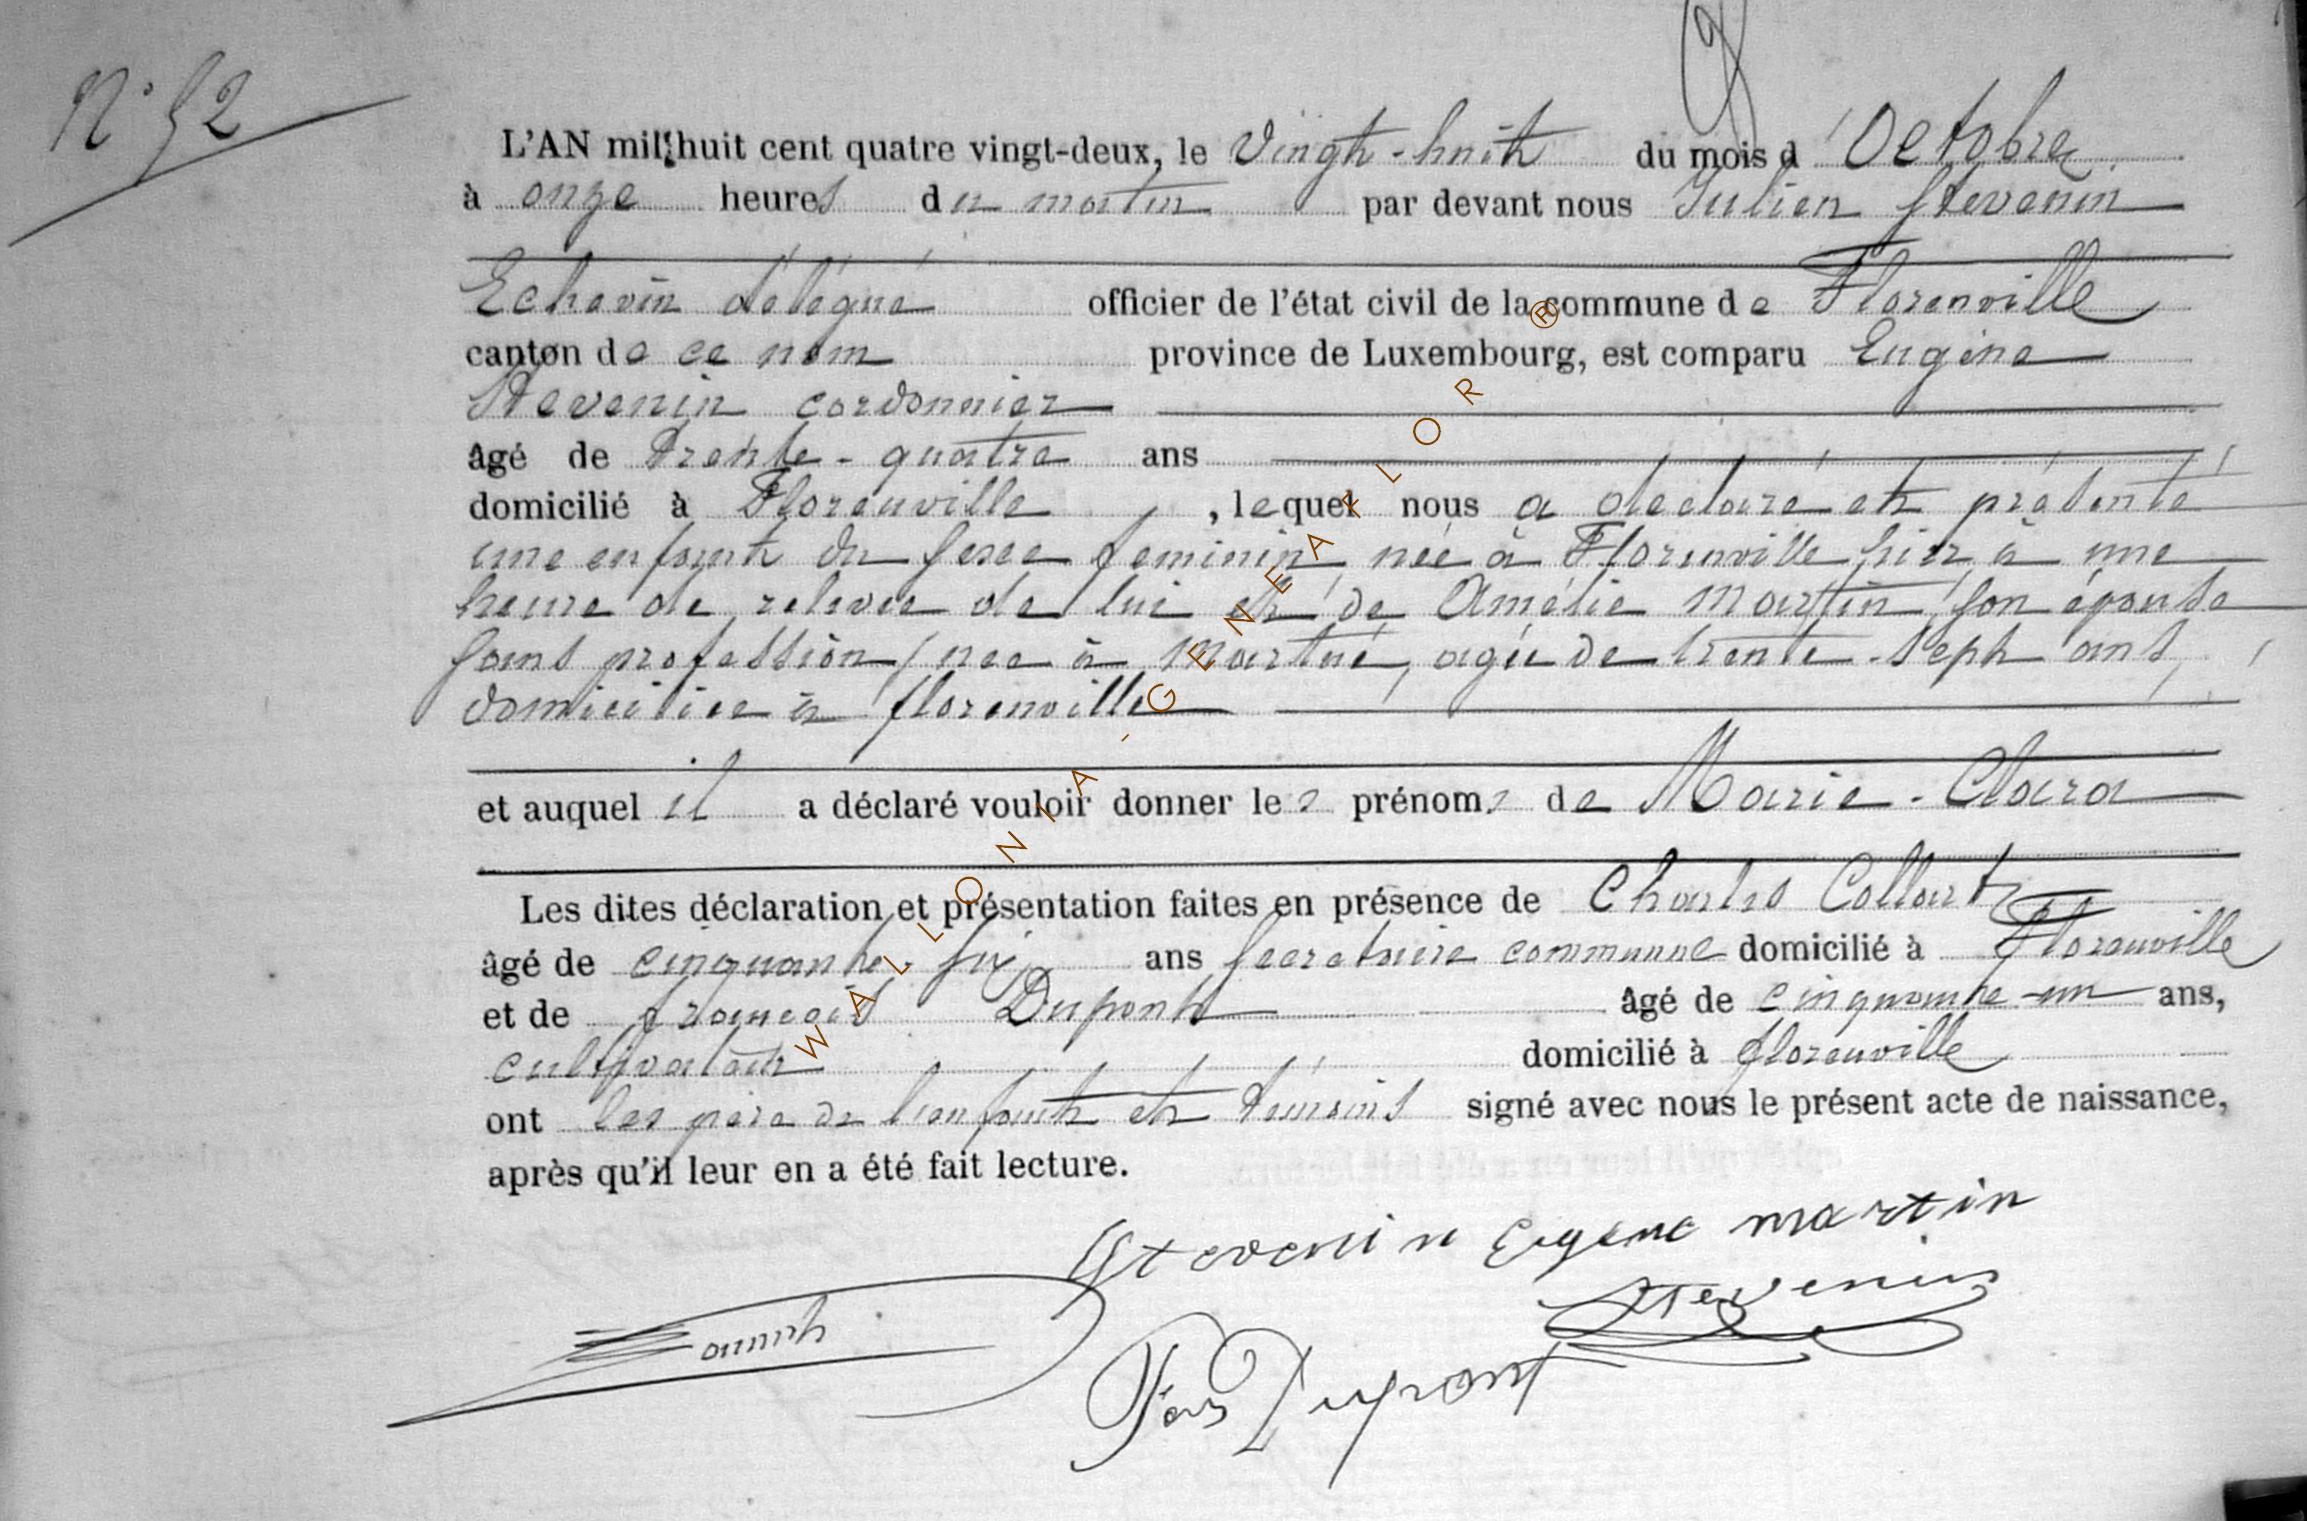 N° 52
L'AN mil huit cent quatre vingt-deux, le Vingt-huit du mois d'Octobre
à onze heures du matin par devant nous Julien Stevenin
Echevin délégué officier de l'état civil de la commune de Florenville
canton de ce nom province de Luxembourg, est comparu Eugène
Stevenin cordonnier
âgé de trente-quatre ans
domicilié à Florenville, lequel nous a déclaré et présenté
une enfant du sexe feminin, née à Florenville hier à une
heure de relevée de lui et de Amélie Martin, son épouse
sans profession, née à Martué, agée de trente-sept ans,
domiciliée à florenville
et auquel il a déclaré vouloir donner les prénoms de Marie-Clara
Les dites déclaration et présentation faites en présence de Charles Collart
âgé de cinquante-six ans Secretaire communal domicilié à Florenville
et de françois Dupont âgé de cinquante-un ans,
cultivateur domicilié à florenville
ont les père de l'enfant et témoins signé avec nous le présent acte de naissance,
après qu'il leur en a été fait lecture.
Stevenin Eugene martin
Stevenin
Dupont
WALLONIA-GENEAFLOR®